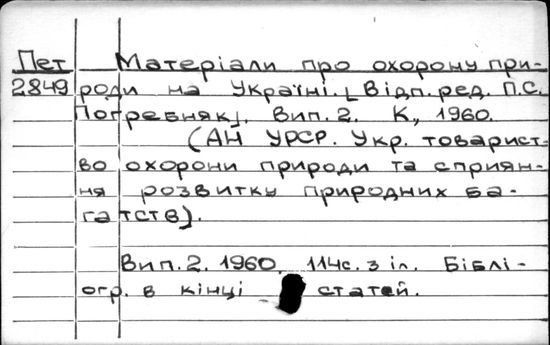 Пет Матеріали про охорону при-
2849 роди на Україні. [Відп. ред. П.С.
Погребняк]. Вип. 2. К., 1960.
(АН УРСР. Укр. товарист-
во охорони природи та сприян-
ня розвитку природних ба-
гатств).
Вип. 2. 1960. 114с. з іл. Біблі-
огр. в кінці статей.